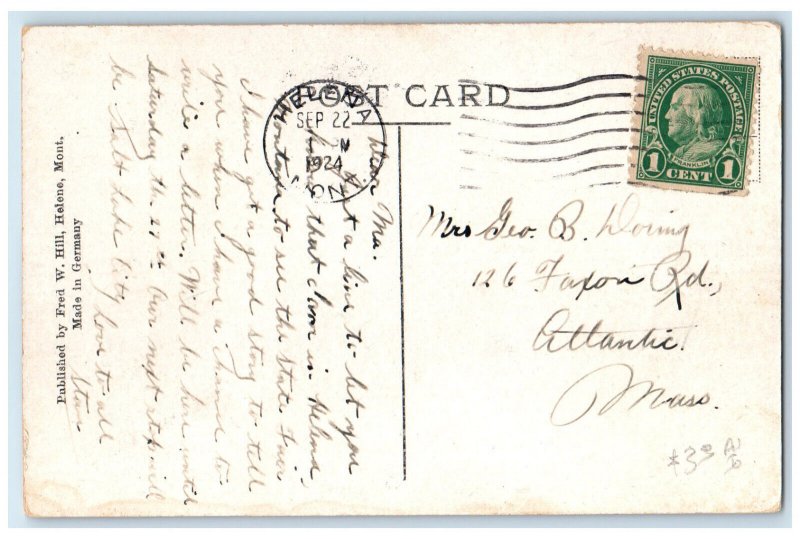 POST CARD
HELENA
SEP 22
1924
UNITED STATES POSTAGE
FRANKLIN
1 CENT 1
Dear Ma.
Just a line to let you
know that I am in Helena,
Montana to see the State Fair
I have got a good story to tell
you when I have a chance to
write a letter. Will be here until
Saturday the 27th Our next stop will
be Salt Lake City
Love to all
Mrs Geo. B. Doring
126 Faxon Rd.,
Atlantic.
Mass.
Published by Fred W. Hill, Helene, Mont.
Made in Germany